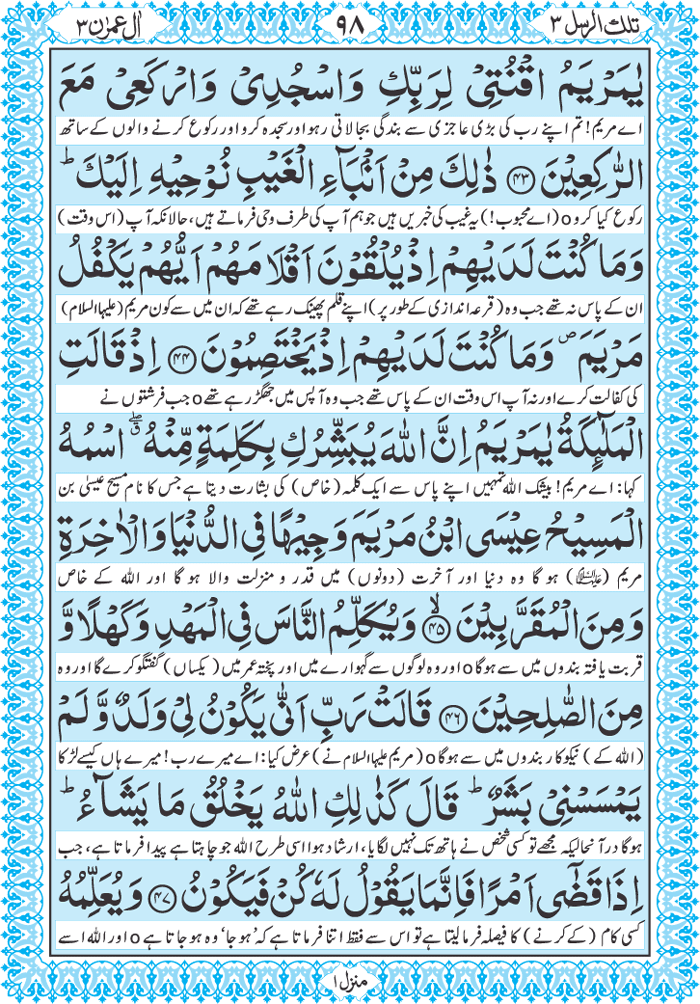 تلك الرسل ۳
۹۸
اٰل عمرٰن ۳
يٰمَرْيَمُ اقْنُتِيْ لِرَبِّكِ وَاسْجُدِيْ وَارْكَعِيْ مَعَ
اے مریم! تم اپنے رب کی بڑی عاجزی سے بندگی بجا لاتی رہو اور سجدہ کرو اور رکوع کرنے والوں کے ساتھ
الرّٰكِعِيْنَ ۝۴۳ ذٰلِكَ مِنْ اَنْۢبَآءِ الْغَيْبِ نُوْحِيْهِ اِلَيْكَ ؕ
رکوع کیا کرو o (اے محبوب!) یہ غیب کی خبریں ہیں جو ہم آپ کی طرف وحی فرماتے ہیں، حالانکہ آپ (اس وقت)
وَمَا كُنْتَ لَدَيْهِمْ اِذْ يُلْقُوْنَ اَقْلَامَهُمْ اَيُّهُمْ يَكْفُلُ
ان کے پاس نہ تھے جب وہ (قرعہ اندازی کے طور پر) اپنے قلم پھینک رہے تھے کہ ان میں سے کون مریم (علیہا السلام)
مَرْيَمَ ۪ وَمَا كُنْتَ لَدَيْهِمْ اِذْ يَخْتَصِمُوْنَ ۝۴۴ اِذْ قَالَتِ
کی کفالت کرے اور نہ آپ اس وقت ان کے پاس تھے جب وہ آپس میں جھگڑ رہے تھے o جب فرشتوں نے
الْمَلٰٓئِكَةُ يٰمَرْيَمُ اِنَّ اللّٰهَ يُبَشِّرُكِ بِكَلِمَةٍ مِّنْهُ ۖۗ اسْمُهُ
کہا: اے مریم! بیشک اللہ تمہیں اپنے پاس سے ایک کلمہ (خاص) کی بشارت دیتا ہے جس کا نام مسیح عیسیٰ بن
الْمَسِيْحُ عِيْسَى ابْنُ مَرْيَمَ وَجِيْهًا فِي الدُّنْيَا وَالْاٰخِرَةِ
مریم (علیہما السلام) ہوگا وہ دنیا اور آخرت (دونوں) میں قدر و منزلت والا ہو گا اور اللہ کے خاص
وَمِنَ الْمُقَرَّبِيْنَ ۙ۝۴۵ وَيُكَلِّمُ النَّاسَ فِي الْمَهْدِ وَكَهْلًا وَّ
قربت یافتہ بندوں میں سے ہوگا o اور وہ لوگوں سے گہوارے میں اور پختہ عمر میں (یکساں) گفتگو کرے گا اور وہ
مِنَ الصّٰلِحِيْنَ ۝۴۶ قَالَتْ رَبِّ اَنّٰى يَكُوْنُ لِيْ وَلَدٌ وَّلَمْ
(اللہ کے) نیکوکار بندوں میں سے ہوگا o (مریم علیہا السلام نے) عرض کیا: اے میرے رب! میرے ہاں کیسے لڑکا
يَمْسَسْنِيْ بَشَرٌ ؕ قَالَ كَذٰلِكِ اللّٰهُ يَخْلُقُ مَا يَشَآءُ ؕ
ہوگا درآنحالیکہ مجھے تو کسی شخص نے ہاتھ تک نہیں لگایا، ارشاد ہوا اسی طرح اللہ جو چاہتا ہے پیدا فرماتا ہے، جب
اِذَا قَضٰۤى اَمْرًا فَاِنَّمَا يَقُوْلُ لَهٗ كُنْ فَيَكُوْنُ ۝۴۷ وَيُعَلِّمُهُ
کسی کام (کے کرنے) کا فیصلہ فرما لیتا ہے تو اس سے فقط اتنا فرماتا ہے کہ ’ہو جا‘ وہ ہو جاتا ہے o اور اللہ اسے
منزل ۱